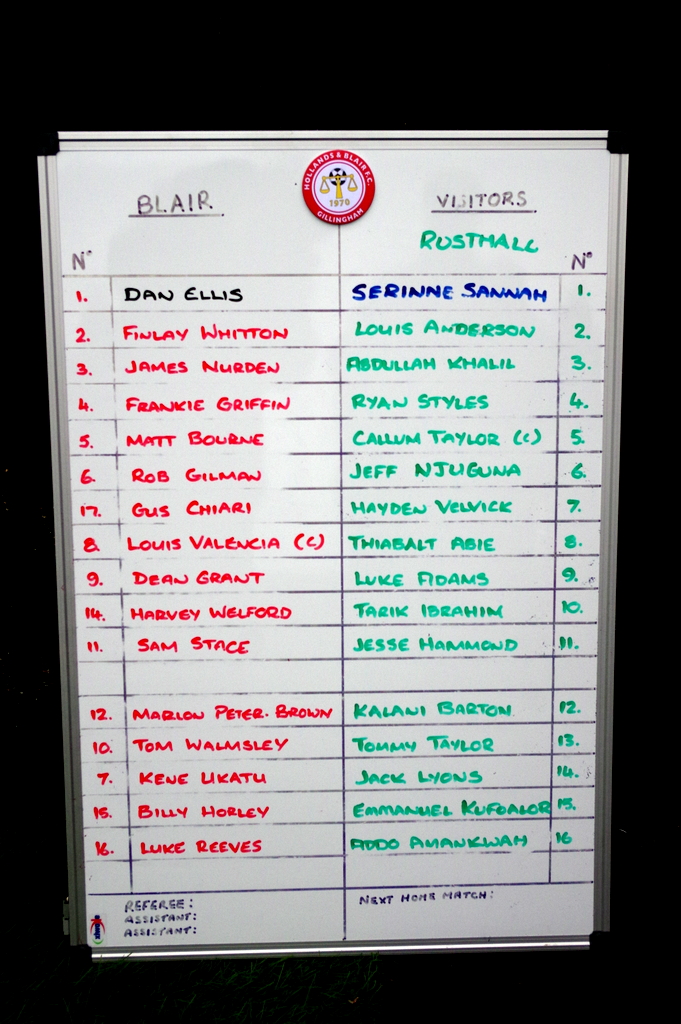 HOLLANDS & BLAIR F.C.
1970
GILLINGHAM
BLAIR VISITORS
RUSTHALL
Nº Nº
1. DAN ELLIS SERINNE SANNAH 1.
2. FINLAY WHITTON LOUIS ANDERSON 2.
3. JAMES NURDEN ABDULLAH KHALIL 3.
4. FRANKIE GRIFFIN RYAN STYLES 4.
5. MATT BOURNE CALLUM TAYLOR (C) 5.
6. ROB GILMAN JEFF NJUGUNA 6.
17. GUS CHIARI HAYDEN VELVICK 7.
8. LOUIS VALENCIA (C) THIABALT ABIE 8.
9. DEAN GRANT LUKE ADAMS 9.
14. HARVEY WELFORD TARIK IBRAHIM 10.
11. SAM STACE JESSE HAMMOND 11.
12. MARLON PETER-BROWN KALANI BARTON 12.
10. TOM WALMSLEY TOMMY TAYLOR 13.
7. KENE UKATU JACK LYONS 14.
15. BILLY HORLEY EMMANUEL KUFOALOR 15.
16. LUKE REEVES ADDO AMANKWAH 16
REFEREE: NEXT HOME MATCH:
ASSISTANT:
ASSISTANT: